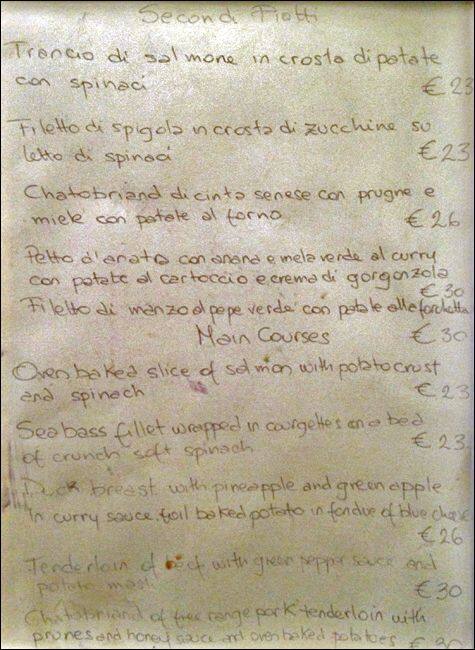 Secondi Piatti
Trancio di salmone in crosta di patate
con spinaci €23
Filetto di spigola in crosta di zucchine su
letto di spinaci €23
Chatobriand di cinta senese con prugne e
miele con patate al forno €26
Petto d'anatra con ananas e mela verde al curry
con patate al cartoccio e crema di gorgonzola
€30
Filetto di manzo al pepe verde con patate alla forchetta
Main Courses €30
Oven baked slice of salmon with potato crust
and spinach €23
Seabass fillet wrapped in courgettes on a bed
of crunch soft spinach €23
Duck breast with pineapple and green apple
in curry sauce foil baked potato in fondue of blue cheese
€26
Tenderloin of beef with green pepper sauce and
potato mash €30
Chatobriand of free range pork tenderloin with
prunes and honey sauce and oven baked potatoes €30